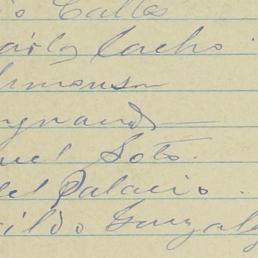 io Calles
arlos Cacho.
Simonson
ignaud
uel Soto.
del Palacio.
aildo Gonzalez